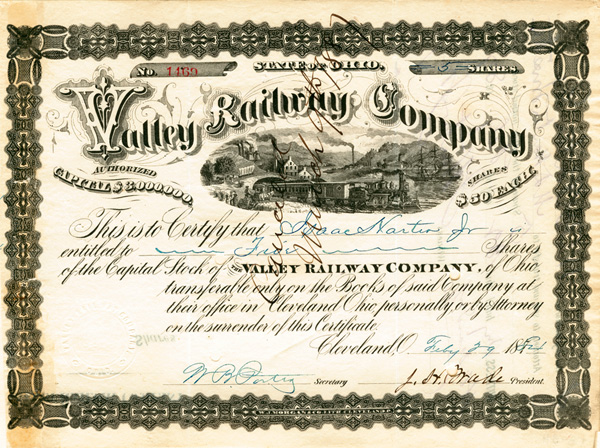 STATE OF OHIO.
No. 1469
5 SHARES
Valley Railway Company
AUTHORIZED
CAPITAL $3,000,000.
SHARES
$50 EACH.
This is to Certify that Isaac Jr is
entitled to Five Shares
of the Capital Stock of THE VALLEY RAILWAY COMPANY, of Ohio,
transferable only on the Books of said Company at
their office in Cleveland Ohio, personally or by Attorney
on the surrender of this Certificate.
Cleveland, O. Feby 29 1884
W B Secretary J. H. Wade President.
W.J. MORGAN & CO. LITH. CLEVELAND O.